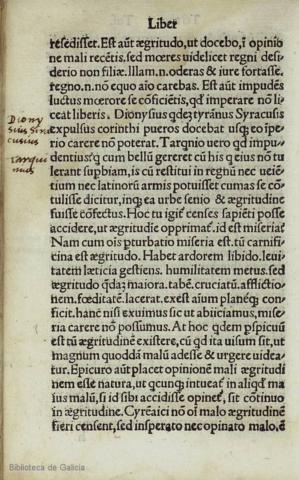 Liber
resedisset. Est aūt ægritudo, ut docebo, ī opinio
ne mali recētis. sed mœres uidelicet regni desi
derio non filiæ. Illam. n. oderas & iure fortasse.
regno. n. nō equo aīo carebas. Est aūt impudēs
luctus mœrore se cōficiētis, qd' imperare nō li-
ceat liberis. Dionysius qdez tyrānus Syracusis
Diony
sius Sira
cusius
expulsus corinthi pueros docebat usqz eo īpe-
rio carere nō poterat. Tarqnio uero qd impu-
Tarqui
nius
dentius? q cum bellū gereret cū his q eius nō tu
lerant supbiam, is cū restitui in regnū nec ueiē
tium nec latinorū armis potuisset cumas se cō-
tulisse dicitur, inqz ea urbe senio & ægritudine
fuisse cōfectus. Hoc tu igit censes sapiēti posse
accidere, ut ægritudīe opprimat. id est miseria?
Nam cum oīs pturbatio miseria est. tū carnifi-
cina est ægritudo. Habet ardorem libido. leui-
tatem læticia gestiens. humilitatem metus. sed
ægritudo qdaz maiora. tabē. cruciatū. afflictio-
nem. fœditatē. lacerat. exest aīum planeqz con-
ficit. hanc nisi exuimus sic ut abiiciamus, mise-
ria carere nō possumus. At hoc qdem pspicuū
est tū ægritudinē existere, cū qd ita uisum sit, ut
magnum quoddā malū adesse & urgere uidea-
tur. Epicuro aūt placet opinionē mali ægritudi
nem esse natura, ut qcunqz intueat in aliqd ma
ius malū, si id sibi accidisse opinet, sit cōtinuo
in ægritudine. Cyrēaici nō oī malo ægritudinē
fieri censent, sed insperato nec opinato malo. ē
Biblioteca de Galicia